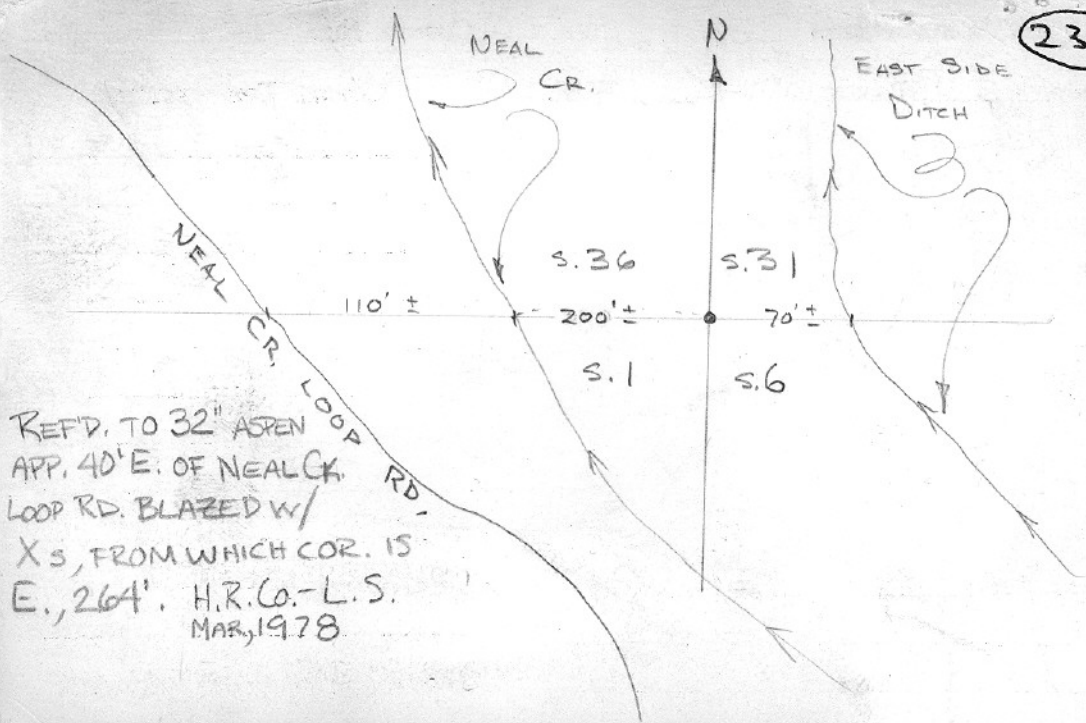 23
N
NEAL
CR.
EAST SIDE
DITCH
NEAL CR. LOOP RD.
S.36
S.31
110' ±
200' ±
70' ±
S.1
S.6
REF'D. TO 32" ASPEN
APP. 40' E. OF NEAL CK.
LOOP RD. BLAZED W/
X s, FROM WHICH COR. IS
E., 264'. H.R.Co.-L.S.
MAR, 1978